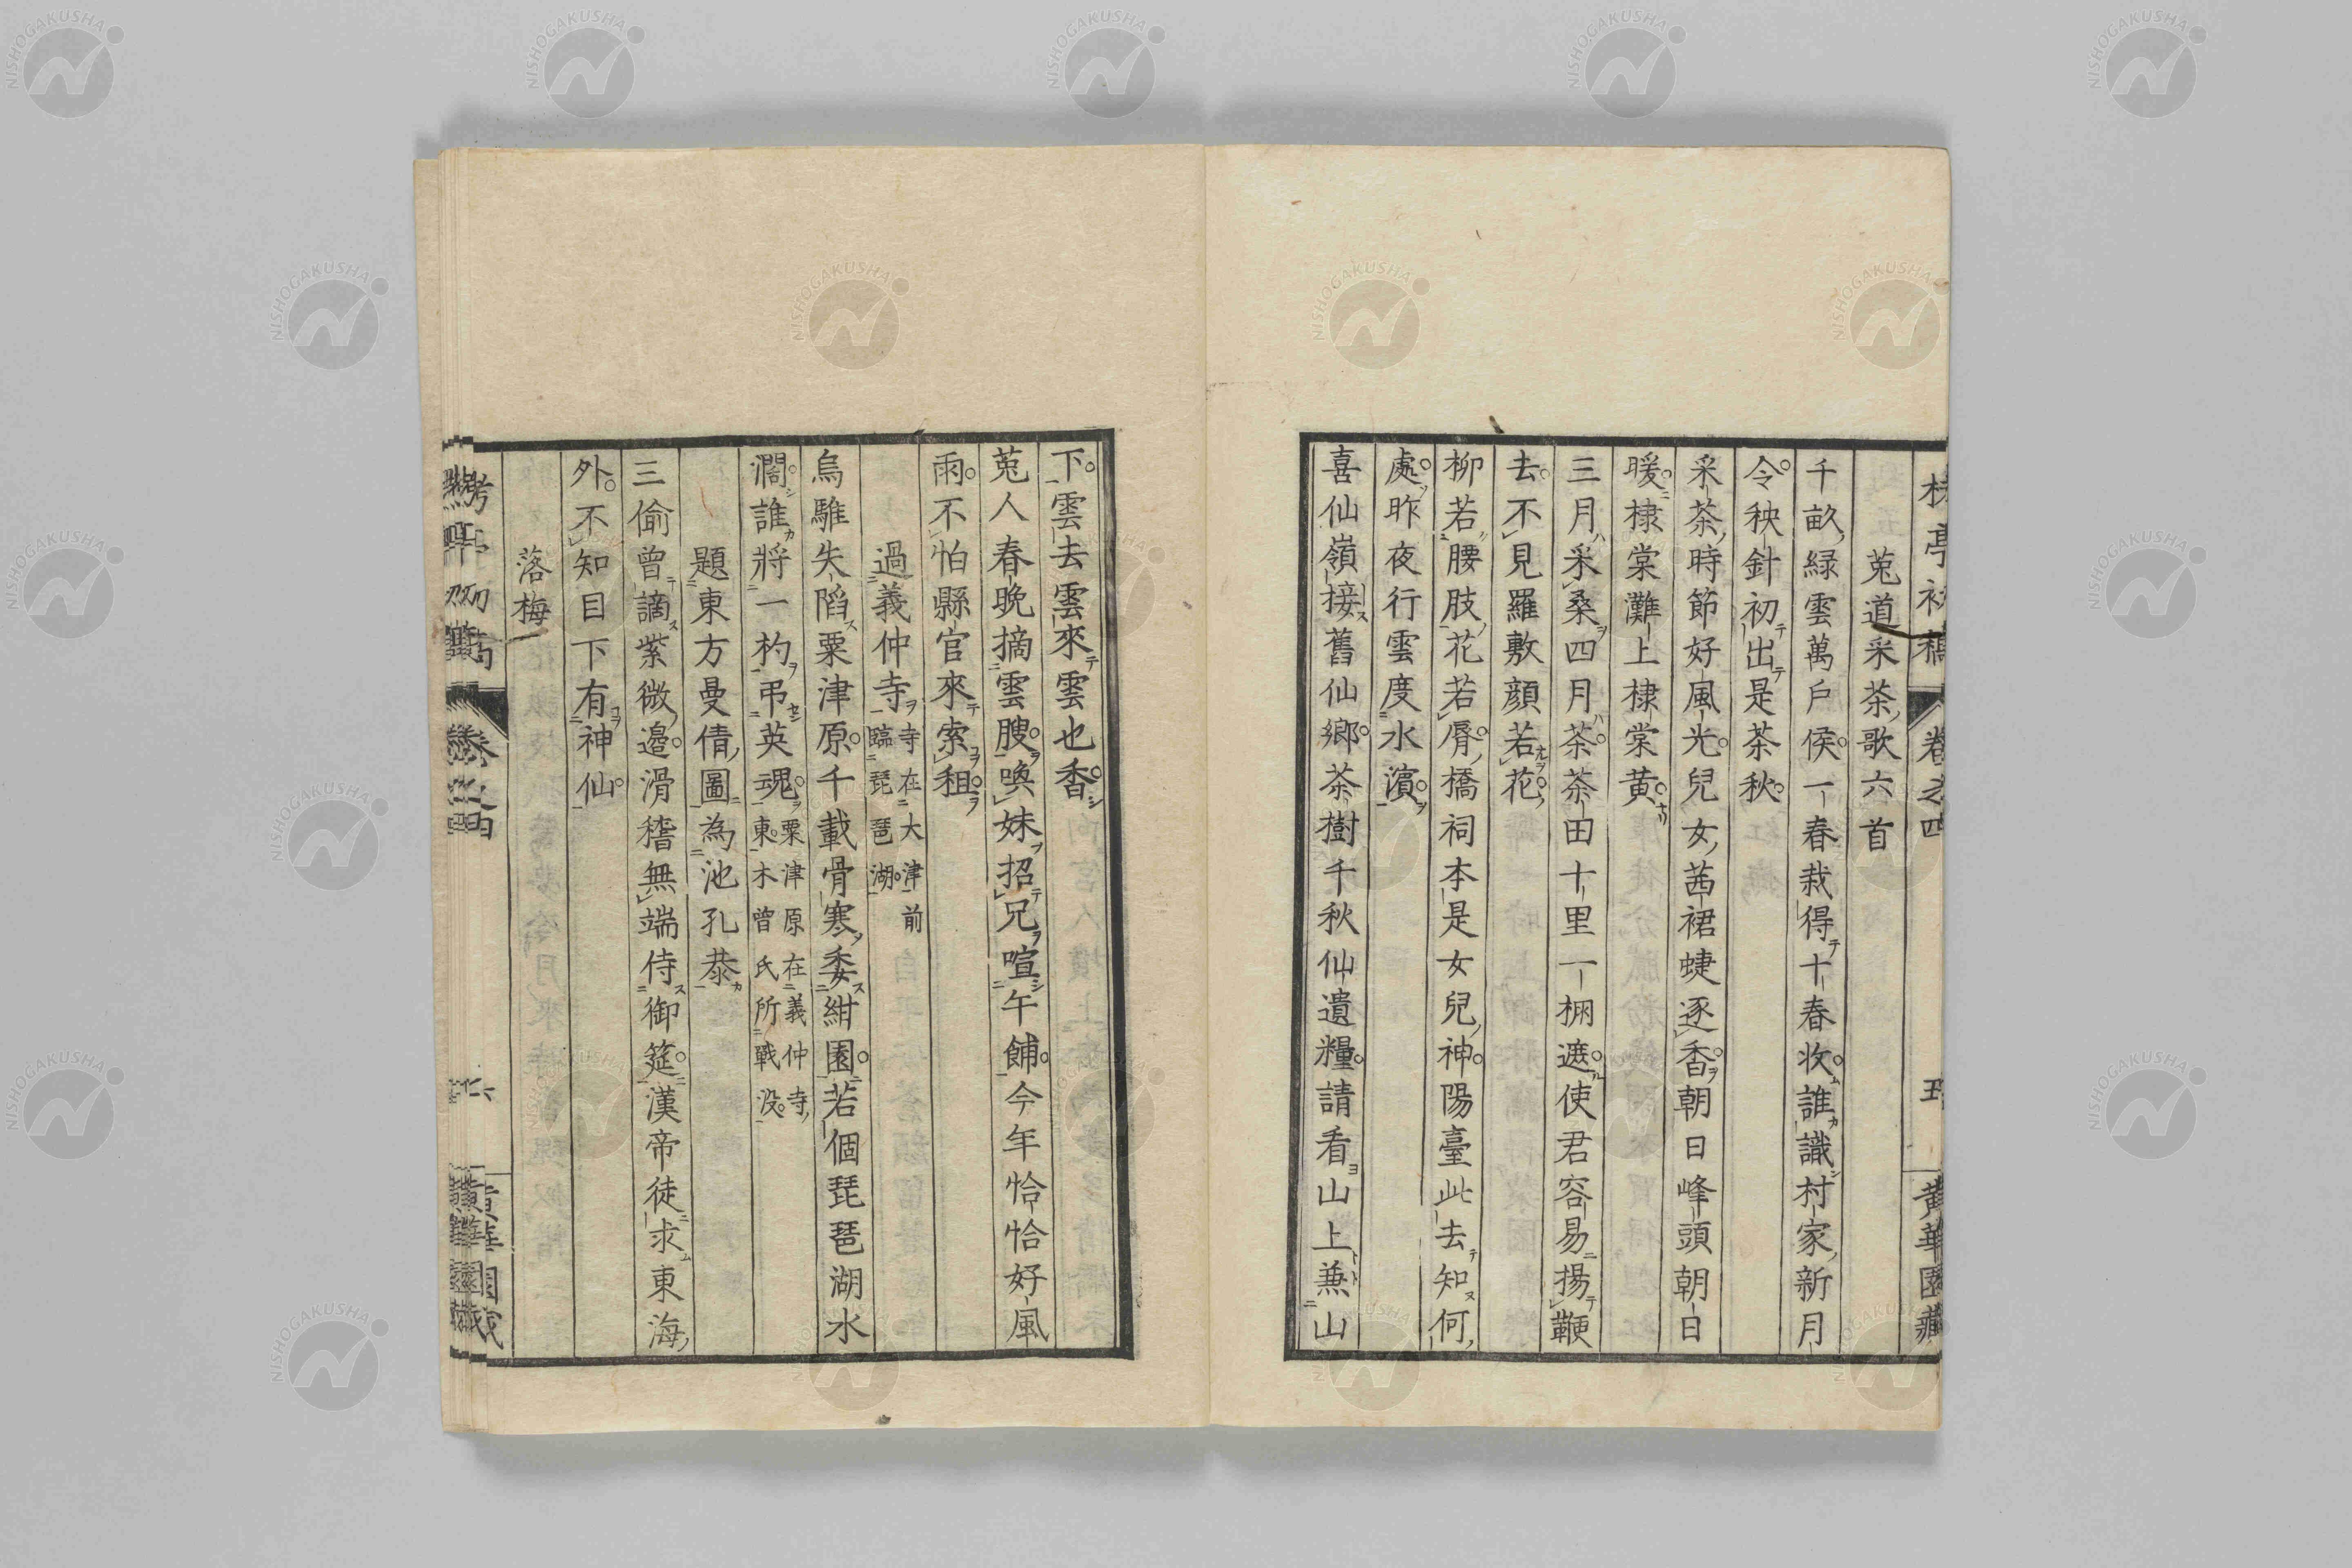 菟道采茶歌六首
千畝緑雲萬戶侯一春栽得十春收誰識村家新月
令秧針初出是茶秋
采茶時節好風光兒女茜裙蜨逐香朝日峰頭朝日
暖棣棠灘上棣棠黄
三月采桑四月茶茶田十里一棚遮使君容易揚鞭
去不見羅敷顔若花
柳若腰肢花若脣橋祠本是女兒神陽臺此去知何
處昨夜行雲度水濵
喜仙嶺接舊仙鄉茶樹千秋仙遺糧請看山上兼山
下雲去雲來雲也香
菟人春晩摘雲腴喚妹招兄喧午餔今年恰恰好風
雨不怕縣官來索租
過義仲寺寺在大津前臨琵琶湖
烏騅失陷粟津原千載骨寒委紺園若個琵琶湖水
濶誰將一杓弔英魂粟津原在義仲寺東木曾氏所戰没
題東方曼倩圖為池孔恭
三偷曾謫紫微邉滑稽無端侍御筵漢帝徒求東海
外不知目下有神仙
落梅
卷之四
黄華園藏
NISHOGAKUSHA